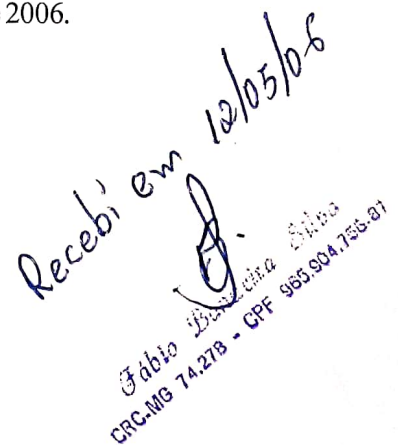 2006.
Recebi em 12/05/06
Fábio Silva
CRC-MG 74.278 - CPF 965.904.756-87